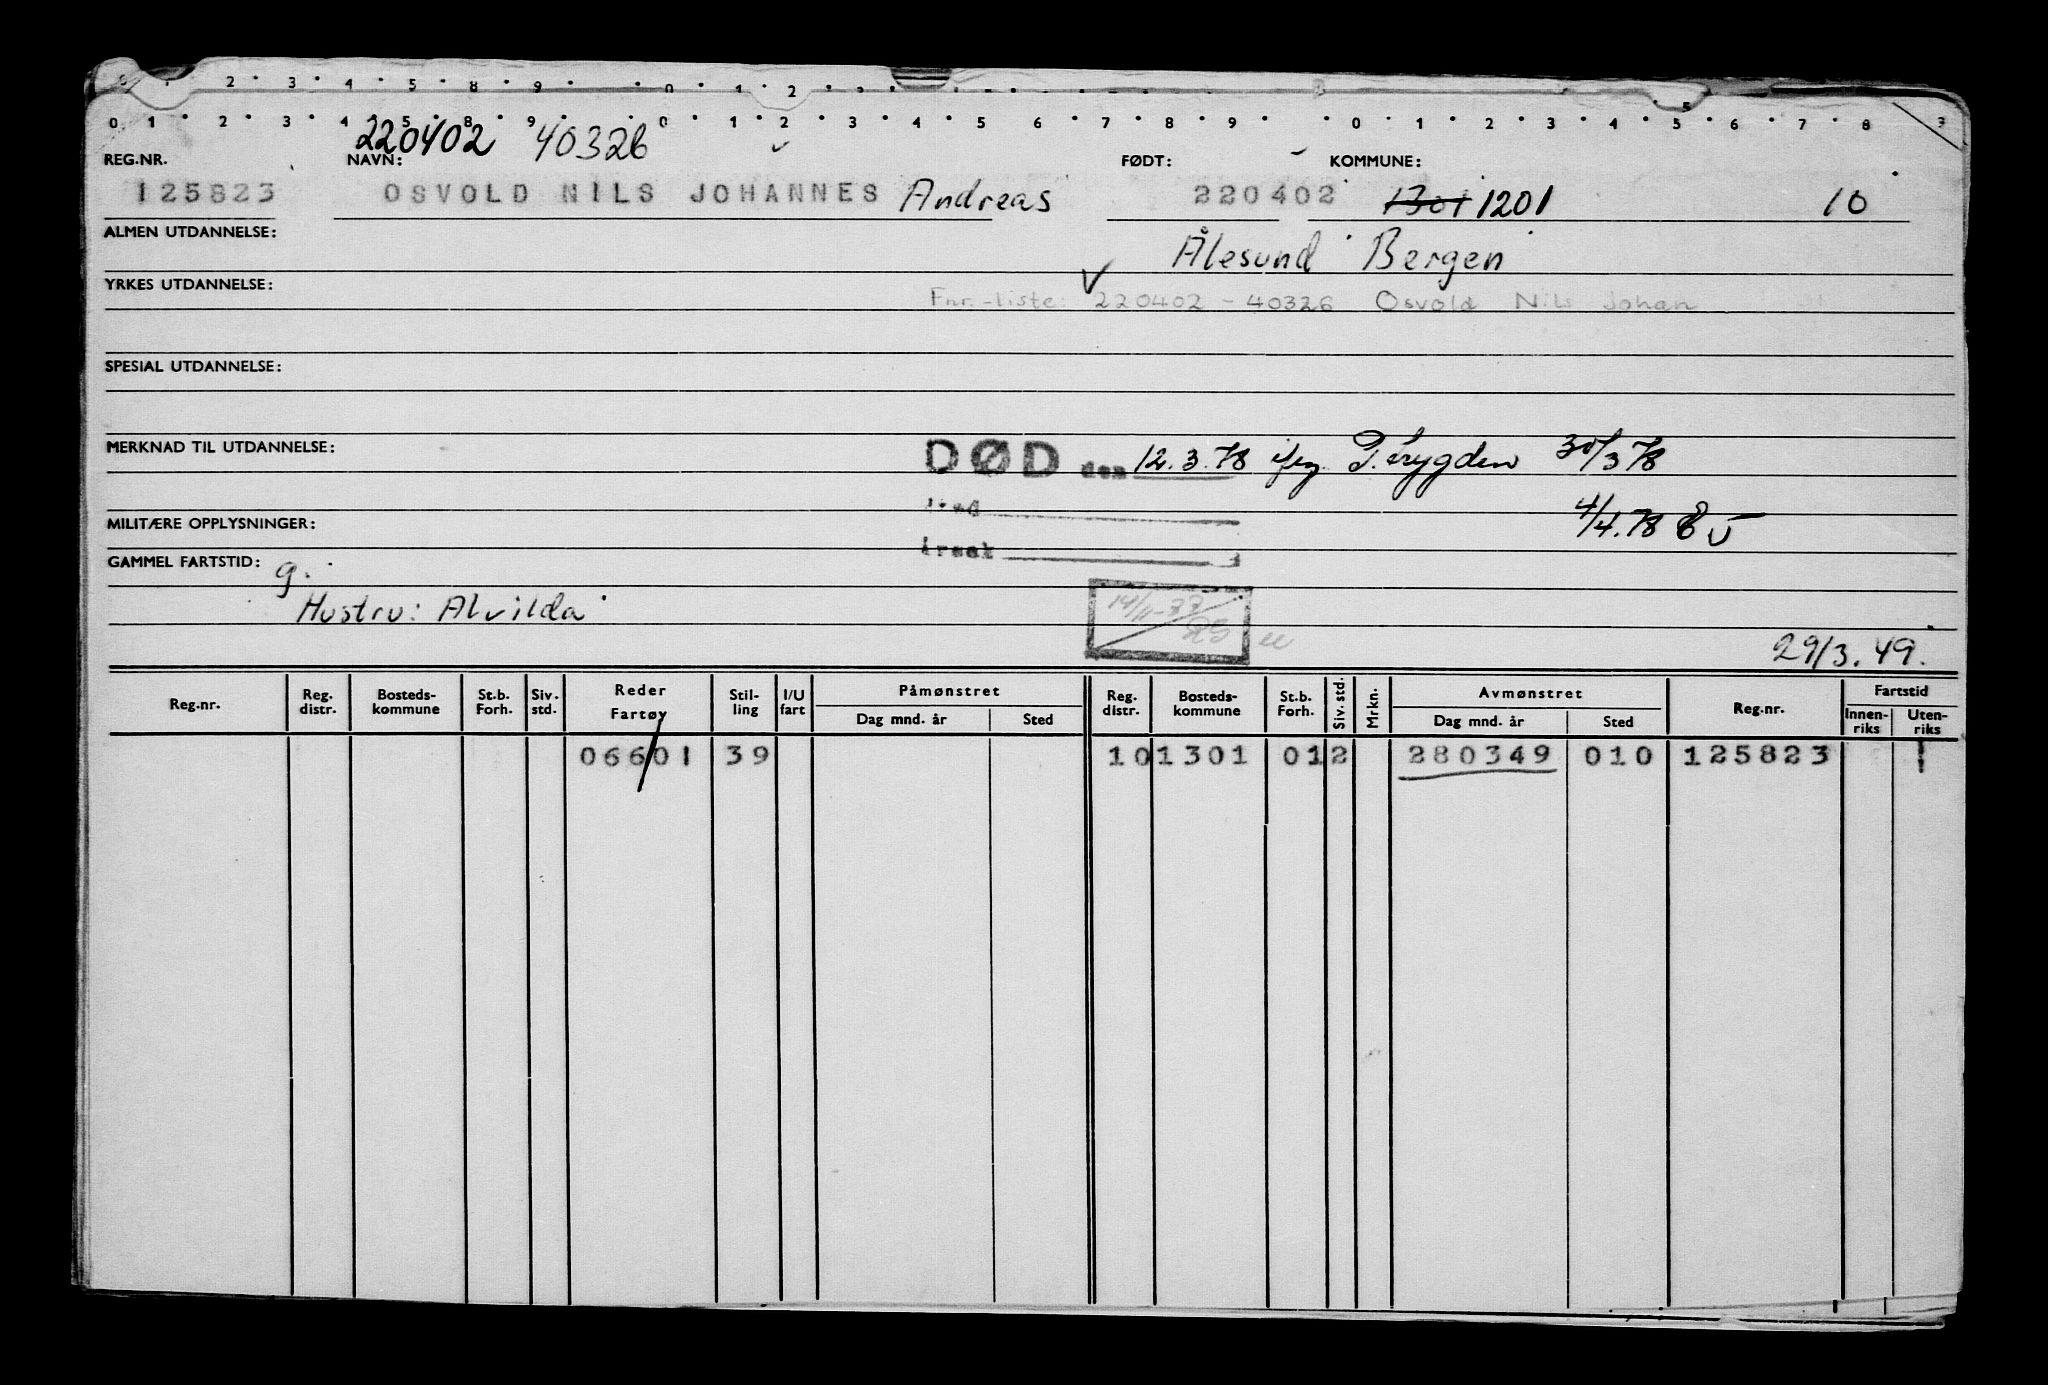 0 1 2 3 4 5 6 7 8 9 0 1 2 3 4 5 6 7 8 9 0 1 2 3 4 5 6 7 8
220402 40326
REG.NR. NAVN: FØDT: KOMMUNE:
125823 OSVOLD NILS JOHANNES Andreas 220402 1301 1201 10
ALMEN UTDANNELSE: Ålesund Bergen
YRKES UTDANNELSE: Fnr.-liste: 220402 - 40326 Osvold Nils Johan
SPESIAL UTDANNELSE:
MERKNAD TIL UTDANNELSE: DØD den 12.3.78 iflg. P.trygden 30/3 78
MILITÆRE OPPLYSNINGER: 4/4.78
GAMMEL FARTSTID: g. årsak
Hustru: Alvilda 14/11-77
29/3.49.
Reg.nr. Reg. distr. Bosteds-kommune St.b. Forh. Siv. std. Reder Fartøy Stil-ling I/U fart Påmønstret Dag mnd. år Sted Reg. distr. Bosteds-kommune St.b. Forh. Siv. std. Mrkn. Avmønstret Dag mnd. år Sted Reg.nr. Fartstid Innen-riks Uten-riks
06601 39 10 1301 01 2 280349 010 125823 1